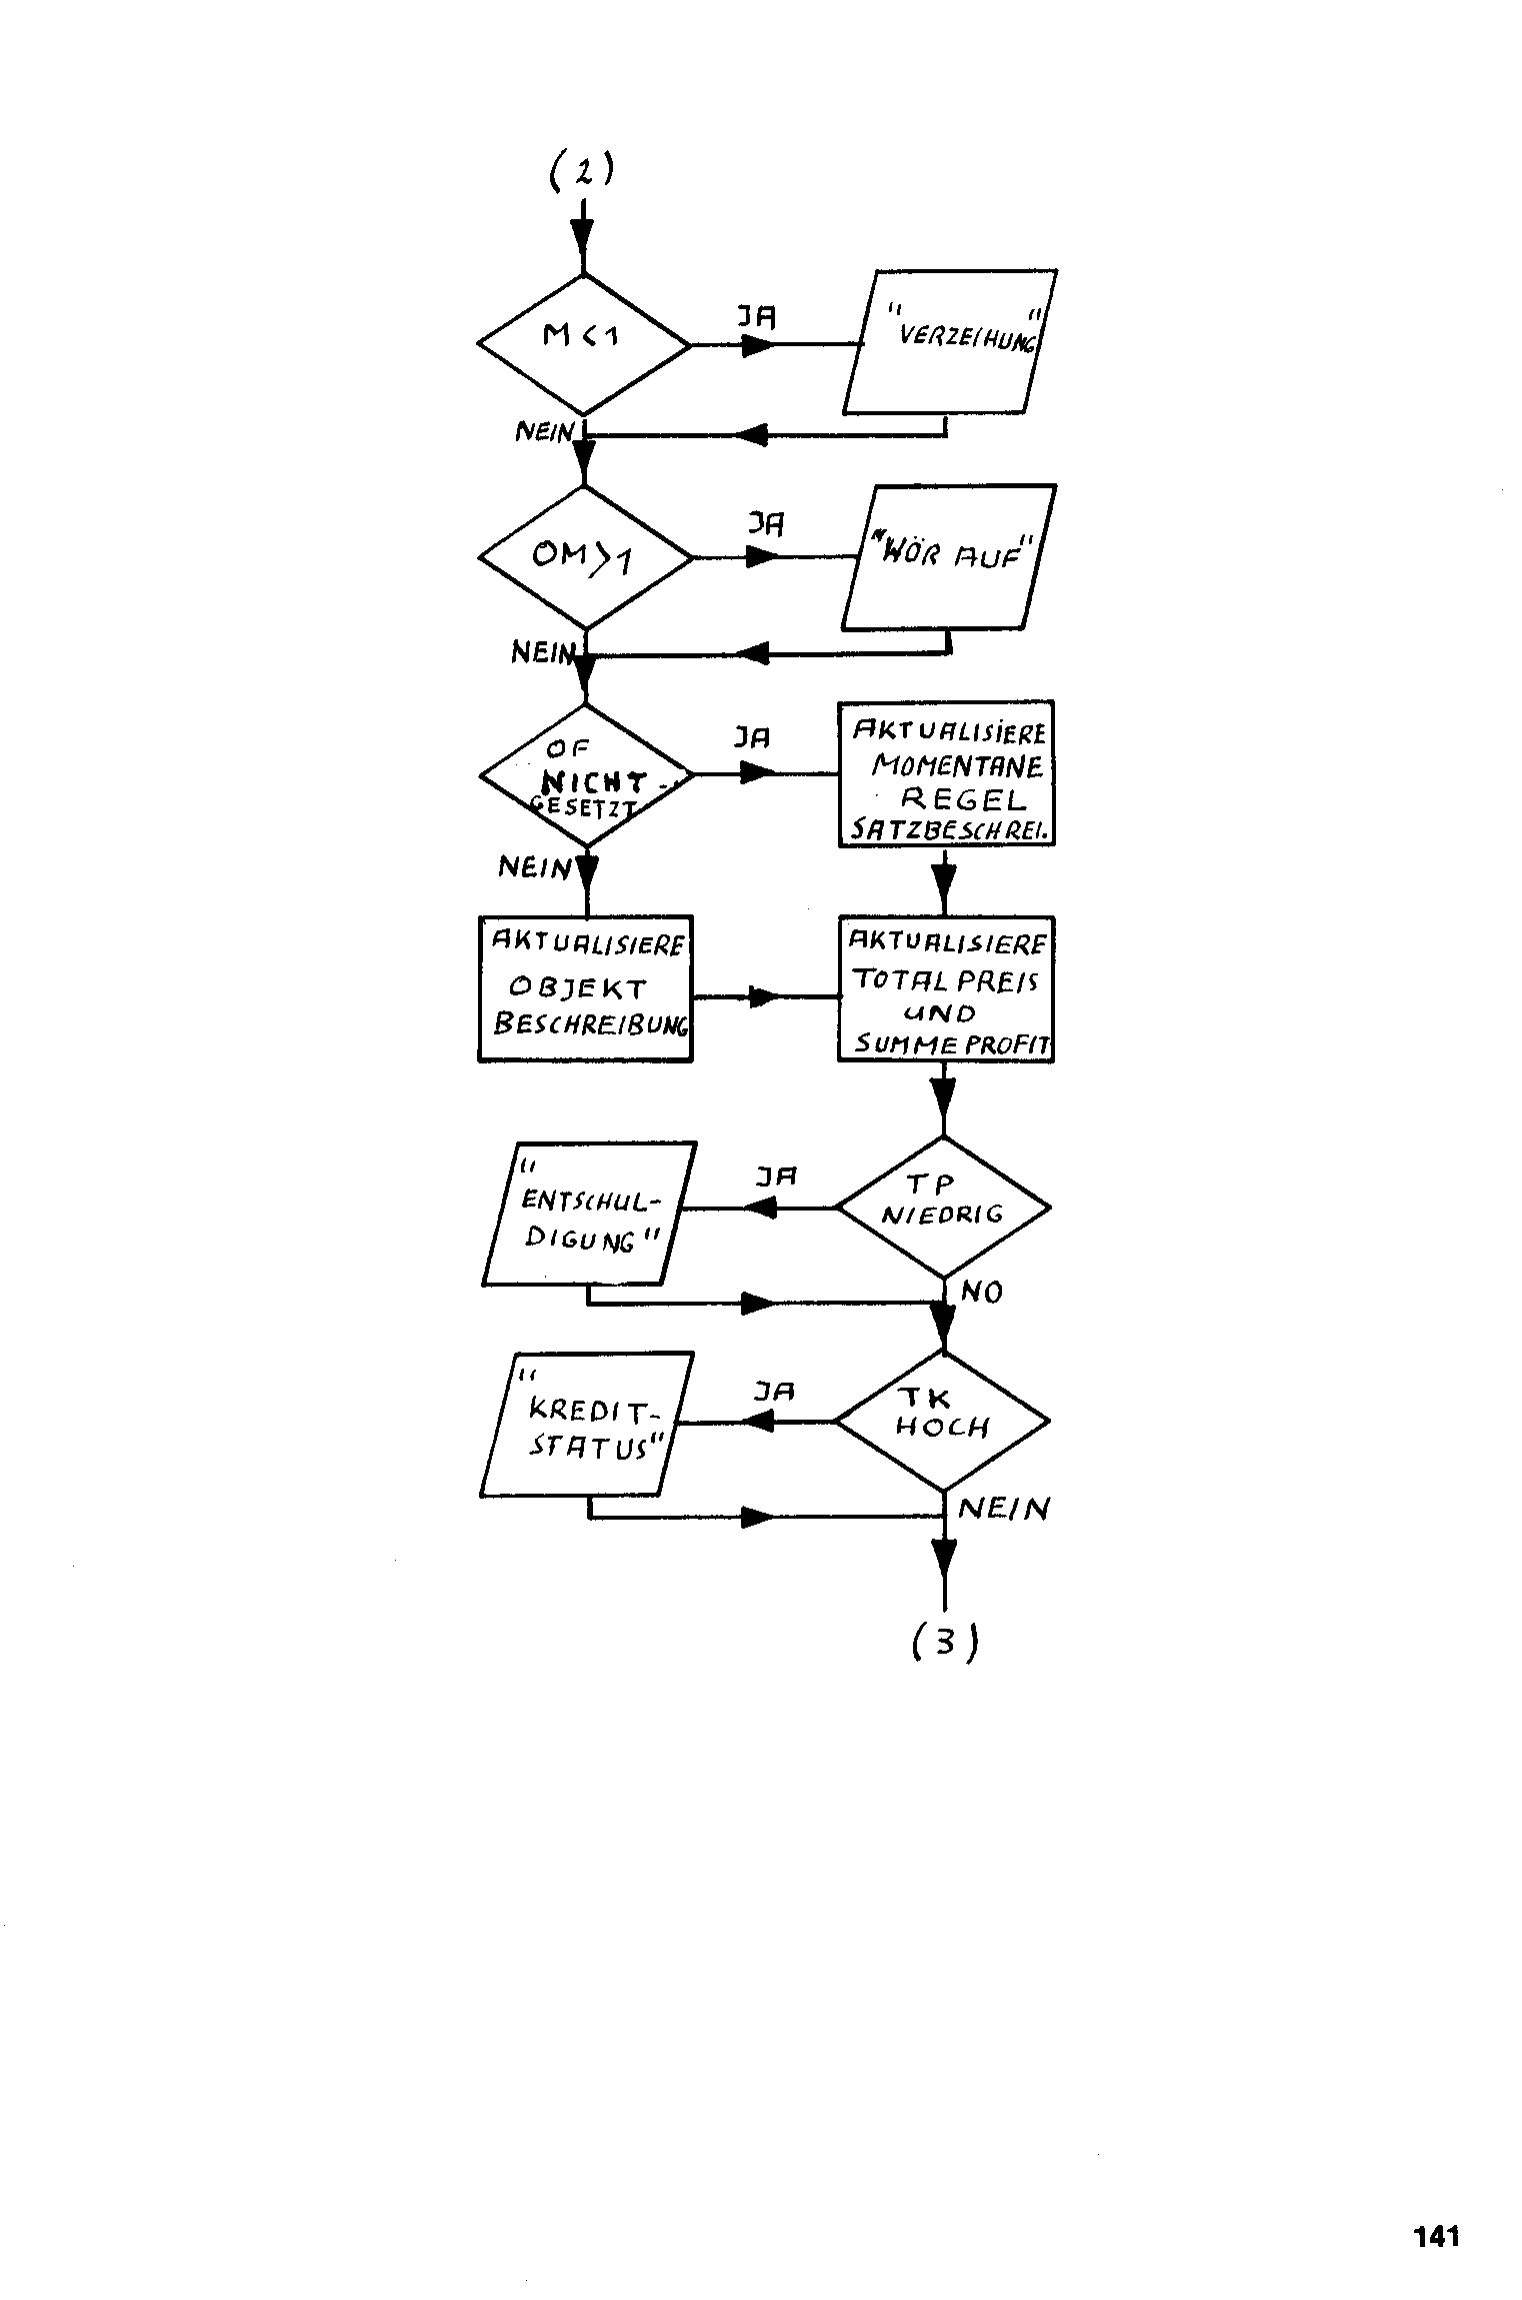 (2)
M<1
JA
"VERZEIHUNG"
NEIN
OM>1
JA
"WÖR AUF"
NEIN
OF
NICHT
GESETZT
JA
AKTUALISIERE
MOMENTANE
REGEL
SATZBESCHREI.
NEIN
AKTUALISIERE
OBJEKT
BESCHREIBUNG
AKTUALISIERE
TOTAL PREIS
UND
SUMME PROFIT
TP
NIEDRIG
JA
"
ENTSCHUL-
DIGUNG"
NO
TK
HOCH
JA
"
KREDIT-
STATUS"
NEIN
(3)
141